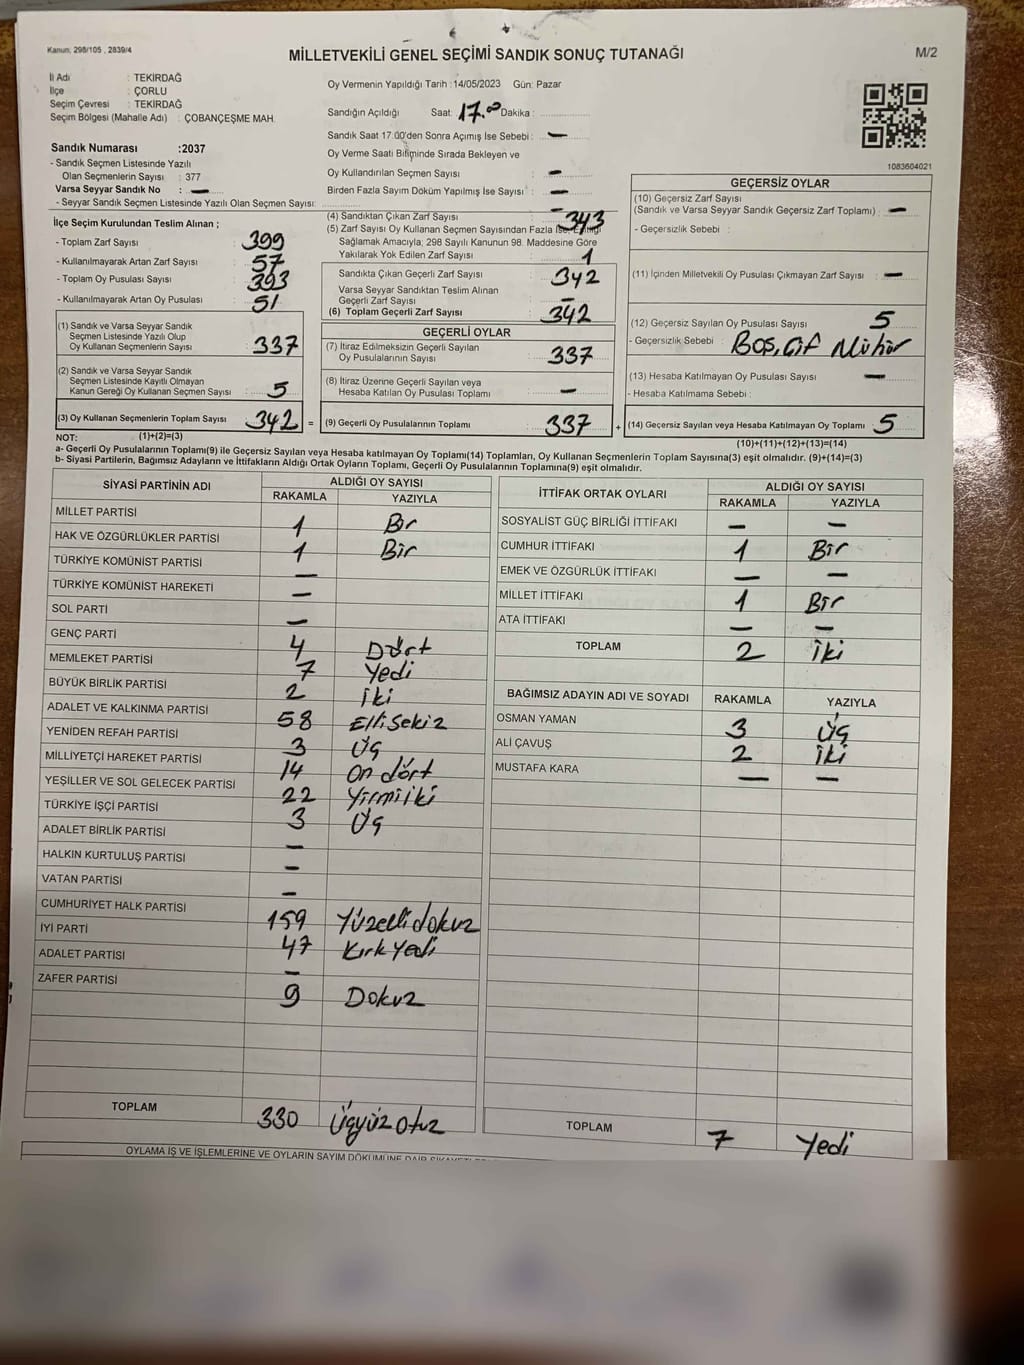 Kanun: 298/105 , 2839/4
MİLLETVEKİLİ GENEL SEÇİMİ SANDIK SONUÇ TUTANAĞI
M/2
İl Adı : TEKİRDAĞ
İlçe : ÇORLU
Seçim Çevresi : TEKİRDAĞ
Seçim Bölgesi (Mahalle Adı) : ÇOBANÇEŞME MAH.
Sandık Numarası :2037
- Sandık Seçmen Listesinde Yazılı
Olan Seçmenlerin Sayısı : 377
Varsa Seyyar Sandık No : —
- Seyyar Sandık Seçmen Listesinde Yazılı Olan Seçmen Sayısı:
Oy Vermenin Yapıldığı Tarih : 14/05/2023 Gün: Pazar
Sandığın Açıldığı Saat: 17.00 Dakika :
Sandık Saat 17.00'den Sonra Açımış İse Sebebi : —
Oy Verme Saati Bitiminde Sırada Bekleyen ve
Oy Kullandırılan Seçmen Sayısı : —
Birden Fazla Sayım Döküm Yapılmış İse Sayısı : —
1083604021
İlçe Seçim Kurulundan Teslim Alınan ;
- Toplam Zarf Sayısı : 399
- Kullanılmayarak Artan Zarf Sayısı : 57
- Toplam Oy Pusulası Sayısı : 393
- Kullanılmayarak Artan Oy Pusulası : 51
(1) Sandık ve Varsa Seyyar Sandık
Seçmen Listesinde Yazılı Olup
Oy Kullanan Seçmenlerin Sayısı : 337
(2) Sandık ve Varsa Seyyar Sandık
Seçmen Listesinde Kayıtlı Olmayan
Kanun Gereği Oy Kullanan Seçmen Sayısı : 5
(3) Oy Kullanan Seçmenlerin Toplam Sayısı 342 =
(4) Sandıktan Çıkan Zarf Sayısı : 343
(5) Zarf Sayısı Oy Kullanan Seçmen Sayısından Fazla İse, Eşitliği
Sağlamak Amacıyla; 298 Sayılı Kanunun 98. Maddesine Göre
Yakılarak Yok Edilen Zarf Sayısı : 1
Sandıkta Çıkan Geçerli Zarf Sayısı : 342
Varsa Seyyar Sandıktan Teslim Alınan
Geçerli Zarf Sayısı : —
(6) Toplam Geçerli Zarf Sayısı : 342
GEÇERLİ OYLAR
(7) İtiraz Edilmeksizin Geçerli Sayılan
Oy Pusulalarının Sayısı : 337
(8) İtiraz Üzerine Geçerli Sayılan veya
Hesaba Katılan Oy Pusulası Toplamı : —
(9) Geçerli Oy Pusulalarının Toplamı : 337 +
GEÇERSİZ OYLAR
(10) Geçersiz Zarf Sayısı
(Sandık ve Varsa Seyyar Sandık Geçersiz Zarf Toplamı) : —
- Geçersizlik Sebebi :
(11) İçinden Milletvekili Oy Pusulası Çıkmayan Zarf Sayısı : —
(12) Geçersiz Sayılan Oy Pusulası Sayısı : 5
- Geçersizlik Sebebi : Boş, Çif Mühür
(13) Hesaba Katılmayan Oy Pusulası Sayısı : —
- Hesaba Katılmama Sebebi :
(14) Geçersiz Sayılan veya Hesaba Katılmayan Oy Toplamı : 5
NOT: (1)+(2)=(3)
(10)+(11)+(12)+(13)=(14)
a- Geçerli Oy Pusulalarının Toplamı(9) ile Geçersiz Sayılan veya Hesaba katılmayan Oy Toplamı(14) Toplamları, Oy Kullanan Seçmenlerin Toplam Sayısına(3) eşit olmalıdır. (9)+(14)=(3)
b- Siyasi Partilerin, Bağımsız Adayların ve İttifakların Aldığı Ortak Oyların Toplamı, Geçerli Oy Pusulalarının Toplamına(9) eşit olmalıdır.
SİYASİ PARTİNİN ADI ALDIĞI OY SAYISI
RAKAMLA YAZIYLA
MİLLET PARTİSİ 1 Bir
HAK VE ÖZGÜRLÜKLER PARTİSİ 1 Bir
TÜRKİYE KOMÜNİST PARTİSİ —
TÜRKİYE KOMÜNİST HAREKETİ —
SOL PARTİ —
GENÇ PARTİ 4 Dört
MEMLEKET PARTİSİ 7 Yedi
BÜYÜK BİRLİK PARTİSİ 2 İki
ADALET VE KALKINMA PARTİSİ 58 Elli Sekiz
YENİDEN REFAH PARTİSİ 3 Üç
MİLLİYETÇİ HAREKET PARTİSİ 14 On dört
YEŞİLLER VE SOL GELECEK PARTİSİ 22 Yirmi iki
TÜRKİYE İŞÇİ PARTİSİ 3 Üç
ADALET BİRLİK PARTİSİ —
HALKIN KURTULUŞ PARTİSİ —
VATAN PARTİSİ —
CUMHURİYET HALK PARTİSİ 159 Yüzelli dokuz
İYİ PARTİ 47 Kırk Yedi
ADALET PARTİSİ —
ZAFER PARTİSİ 9 Dokuz
TOPLAM 330 Üçyüz Otuz
İTTİFAK ORTAK OYLARI ALDIĞI OY SAYISI
RAKAMLA YAZIYLA
SOSYALİST GÜÇ BİRLİĞİ İTTİFAKI — —
CUMHUR İTTİFAKI 1 Bir
EMEK VE ÖZGÜRLÜK İTTİFAKI — —
MİLLET İTTİFAKI 1 Bir
ATA İTTİFAKI — —
TOPLAM 2 İki
BAĞIMSIZ ADAYIN ADI VE SOYADI RAKAMLA YAZIYLA
OSMAN YAMAN 3 Üç
ALİ ÇAVUŞ 2 İki
MUSTAFA KARA — —
TOPLAM 7 Yedi
OYLAMA İŞ VE İŞLEMLERİNE VE OYLARIN SAYIM DÖKÜMÜNE DAİR